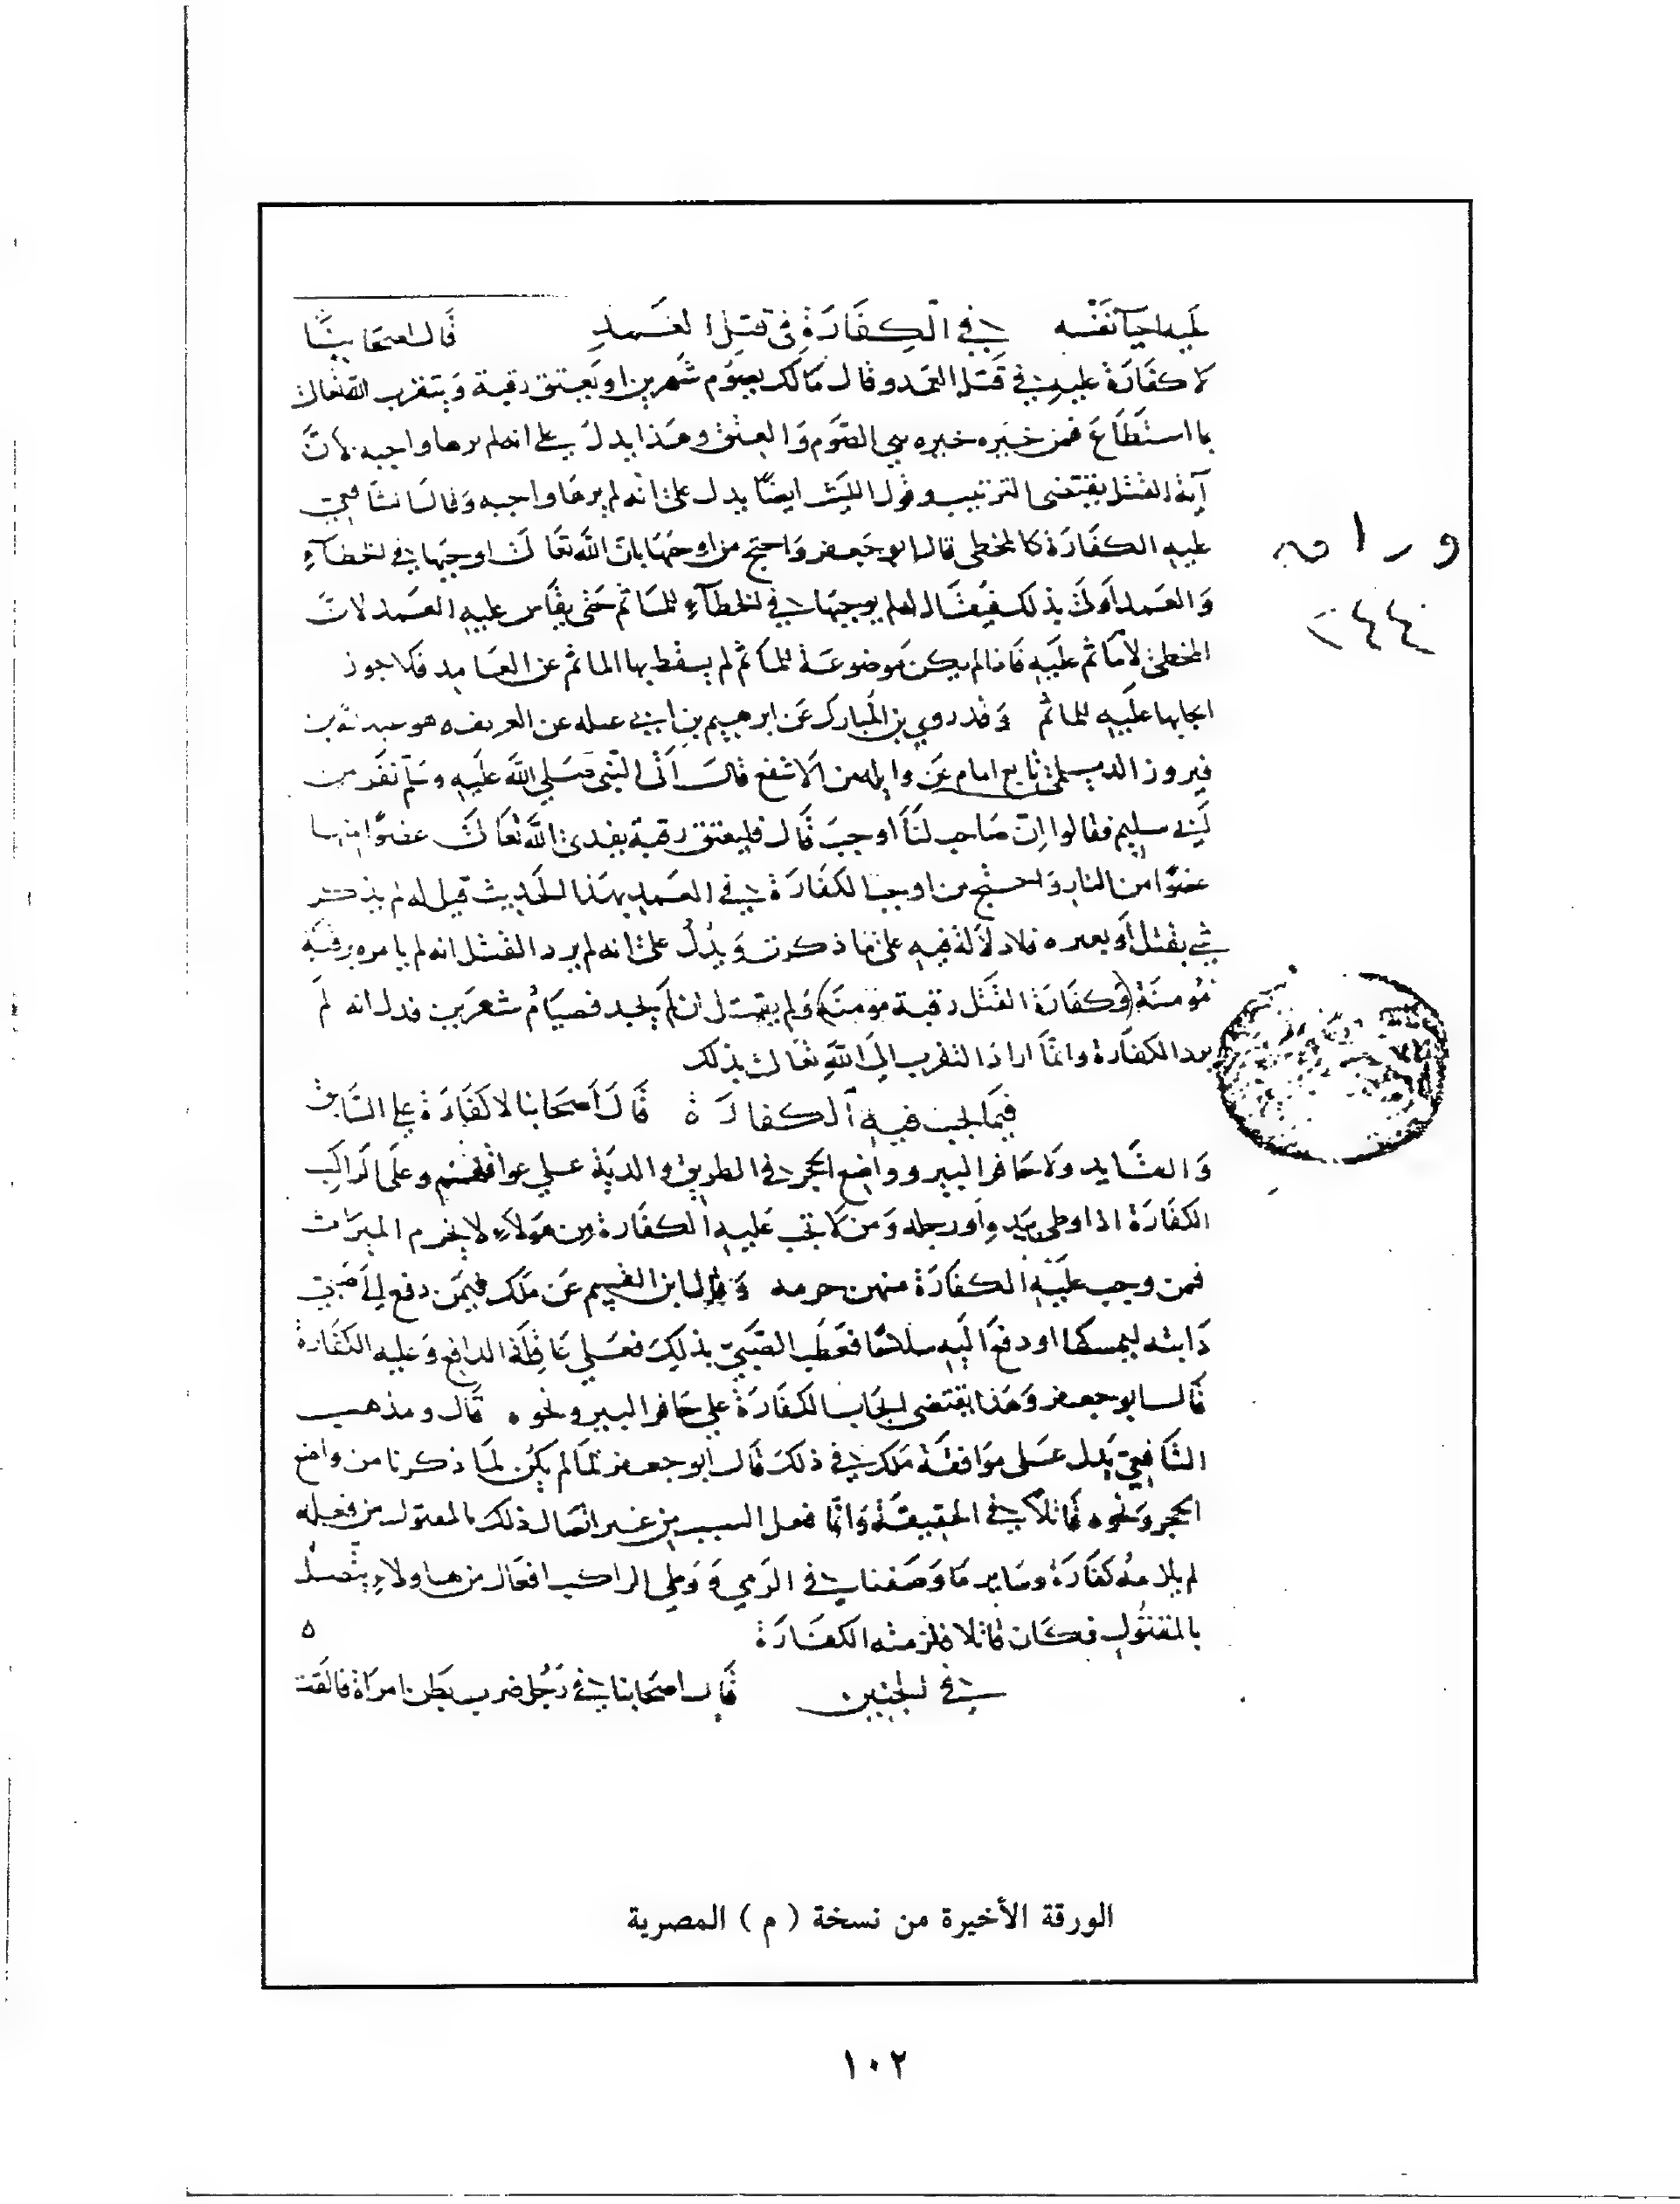 في الكفارة في قتل العمد قال اصحابنا
لا كفارة عليه في قتل العمد وقال مالك يصوم شهرين او يعتق رقبة ويتقرب الى الله تعالى
بما استطاع فمن خيره خيره بين الصوم والعتق وهذا يدل على انه لم يرها واجبه لان
آية القتل يقتضي الترتيب وقول الليث ايضا يدل على انه لم يرها واجبه وقال الشافعي
عليه الكفارة كالمخطى قال ابو جعفر واحتج من اوجبها بان الله تعالى اوجبها في الخطآء
والعمد اولى بذلك فيقال له لم يوجبها في الخطآء للماثم حتى يقاس عليه العمد لان
المخطئ لا مأثم عليه فاذا لم يكن موضوعة للمأثم لم يسقط بها الماثم عن العامد فلا يجوز
ايجابها عليه للماثم وقد روي بن المبارك عن ابرهيم بن ابي عبله عن العريف وهو عبد الله بن
فيروز الديلمي عن واثلة بن الاسقع قال اتى النبي صلى الله عليه وسلم نفر من
بني سليم فقالوا ان صاحب لنا اوجب قال فليعتق رقبة يفدى الله تعالى عضوا منها
عضوا من النار واحتج من اوجب الكفارة في العمد بهذا الحديث قيل له لم يذكر
شي بقتل او بغيره فلا دلالة فيه على ما ذكرت ويدل على انه لم يرد القتل انه لم يامره برقبة
مؤمنة (وكفارة القتل رقبة مؤمنة) ولم يقل ان لم يجد فصيام شهرين فدل انه لم
يرد الكفارة وانما اراد التقرب الى الله تعالى بذلك
فيما يجب فيه الكفارة قال اصحابنا لا كفارة على السابق
والقايد ولا حافر البير وواضع الحجر في الطريق والدية على عواقلهم وعلى الراكب
الكفارة اذا وطى بيد او رجله ومن لا تجب عليه الكفارة من هولاء لا يحرم الميراث
فمن وجب عليه الكفارة منهن حرمه وقال ابن القسيم عن ملك فيمن دفع الى صبي
دابته ليمسكها او دفع اليه سلاحا فعطب الصبي بذلك فعلى عاقلة الدافع وعليه الكفارة
قال ابو جعفر وهذا يقتضى ايجاب الكفارة علي حافر البير ونحوه قال ومذهب
الشافعي يدل على موافقة ملك في ذلك قال ابو جعفر لما لم يكن لما ذكرنا من واضع
الحجر ونحوه قاتلا في الحقيقة وانما فعل السبب من غير اتصال ذلك بالمقتول من فعله
لم يلزمه كفارة وساير ما وصفنا في الرمي ووطي الراكب افعال من هاولاء يتصل
بالمقتول فكان قاتلا فلزمته الكفارة ٥
في الجنين قال اصحابنا في رجل ضرب بطن امراة فالقت
٢٤٤
الورقة الأخيرة من نسخة ( م ) المصرية
١٠٢